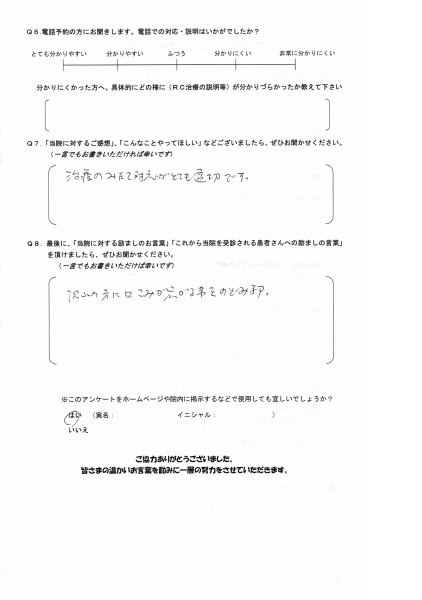 Q6.電話予約の方にお聞きします。電話での対応・説明はいかがでしたか?
とても分かりやすい 分かりやすい ふつう 分かりにくい 非常に分かりにくい
分かりにくかった方へ。具体的にどの様に(RC治療の説明等)が分かりづらかったか教えて下さい
Q7.「当院に対するご感想」、「こんなことやってほしい」などございましたら、ぜひお聞かせください。
(一言でもお書きいただければ幸いです)
治療のみたて対応がとても適切です。
Q8.最後に、「当院に対する励ましのお言葉」「これから当院を受診される患者さんへの励ましの言葉」
を頂けましたら、ぜひお聞かせください。
(一言でもお書きいただけば幸いです)
沢山の方に口こみが広がる事をのぞみます。
※このアンケートをホームページや院内に掲示するなどで使用しても宜しいでしょうか?
はい (実名: イニシャル: )
いいえ
ご協力ありがとうございました。
皆さまの温かいお言葉を励みに一層の努力をさせていただきます。